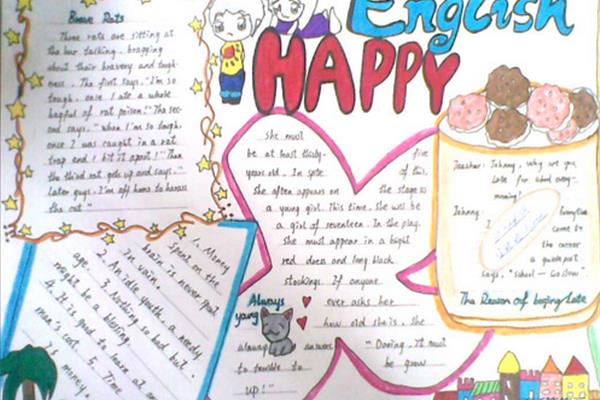 English
HAPPY
Brave Rats
Three rats are sitting at
the bar talking, bragging
about their bravery and tough-
ness. The first says, "I'm so
tough, once I ate a whole
bagful of rat poison!" The sec-
ond says, "when I'm so tough,
once I was caught in a rat
trap and I bit it apart!" Then
the third rat gets up and says, "
Later guys, I'm off home to harass
the cat."
1. Money spent on the
brain is never spent
in vain.
2. An idle youth, a needy
age. 3. Nothing so bad but
might be a blessing.
4. It is good to learn at
man's cost. 5. Time
money
She must
be at least thirty- five
years old. In spite of this,
she often appears on the stage as
a young girl. This time, she will be
a girl of seventeen. In the play,
she must appear in a bright
red dress and long black
stockings. If anyone
Always
yang
ever asks her
how old she is, she
always answers
"Daring, it must
to terrible to be grow
up!"
Teacher: Johnny, why are you
late for school every-
morning?
Johnny:
come to
the corner
a guide post
says, "School — Go slow"
The Reason of being Late